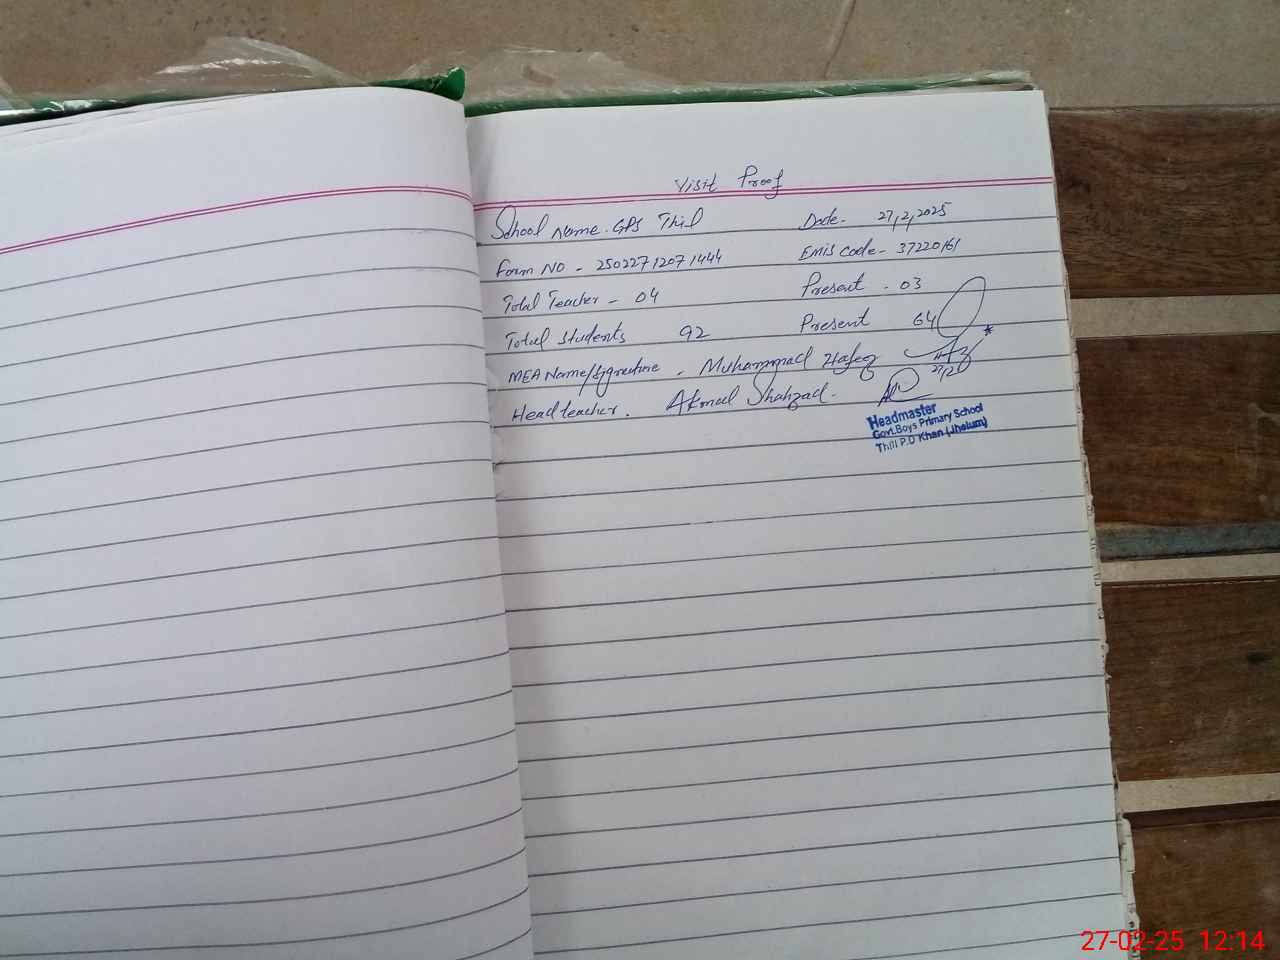 Visit Proof
School Name. GPS Thil Date- 27,2,2025
Form NO - 2502271207 1444 Emis Code- 37220161
Total Teacher - 04 Present - 03
Total Students 92 Present 64
MEA Name/Signature - Muhammad Hafeez
Head teacher. Akmal Shahzad.
Headmaster
Govt.Boys Primary School
Thill P.D Khan (Jhelum)
27-02-25 12:14